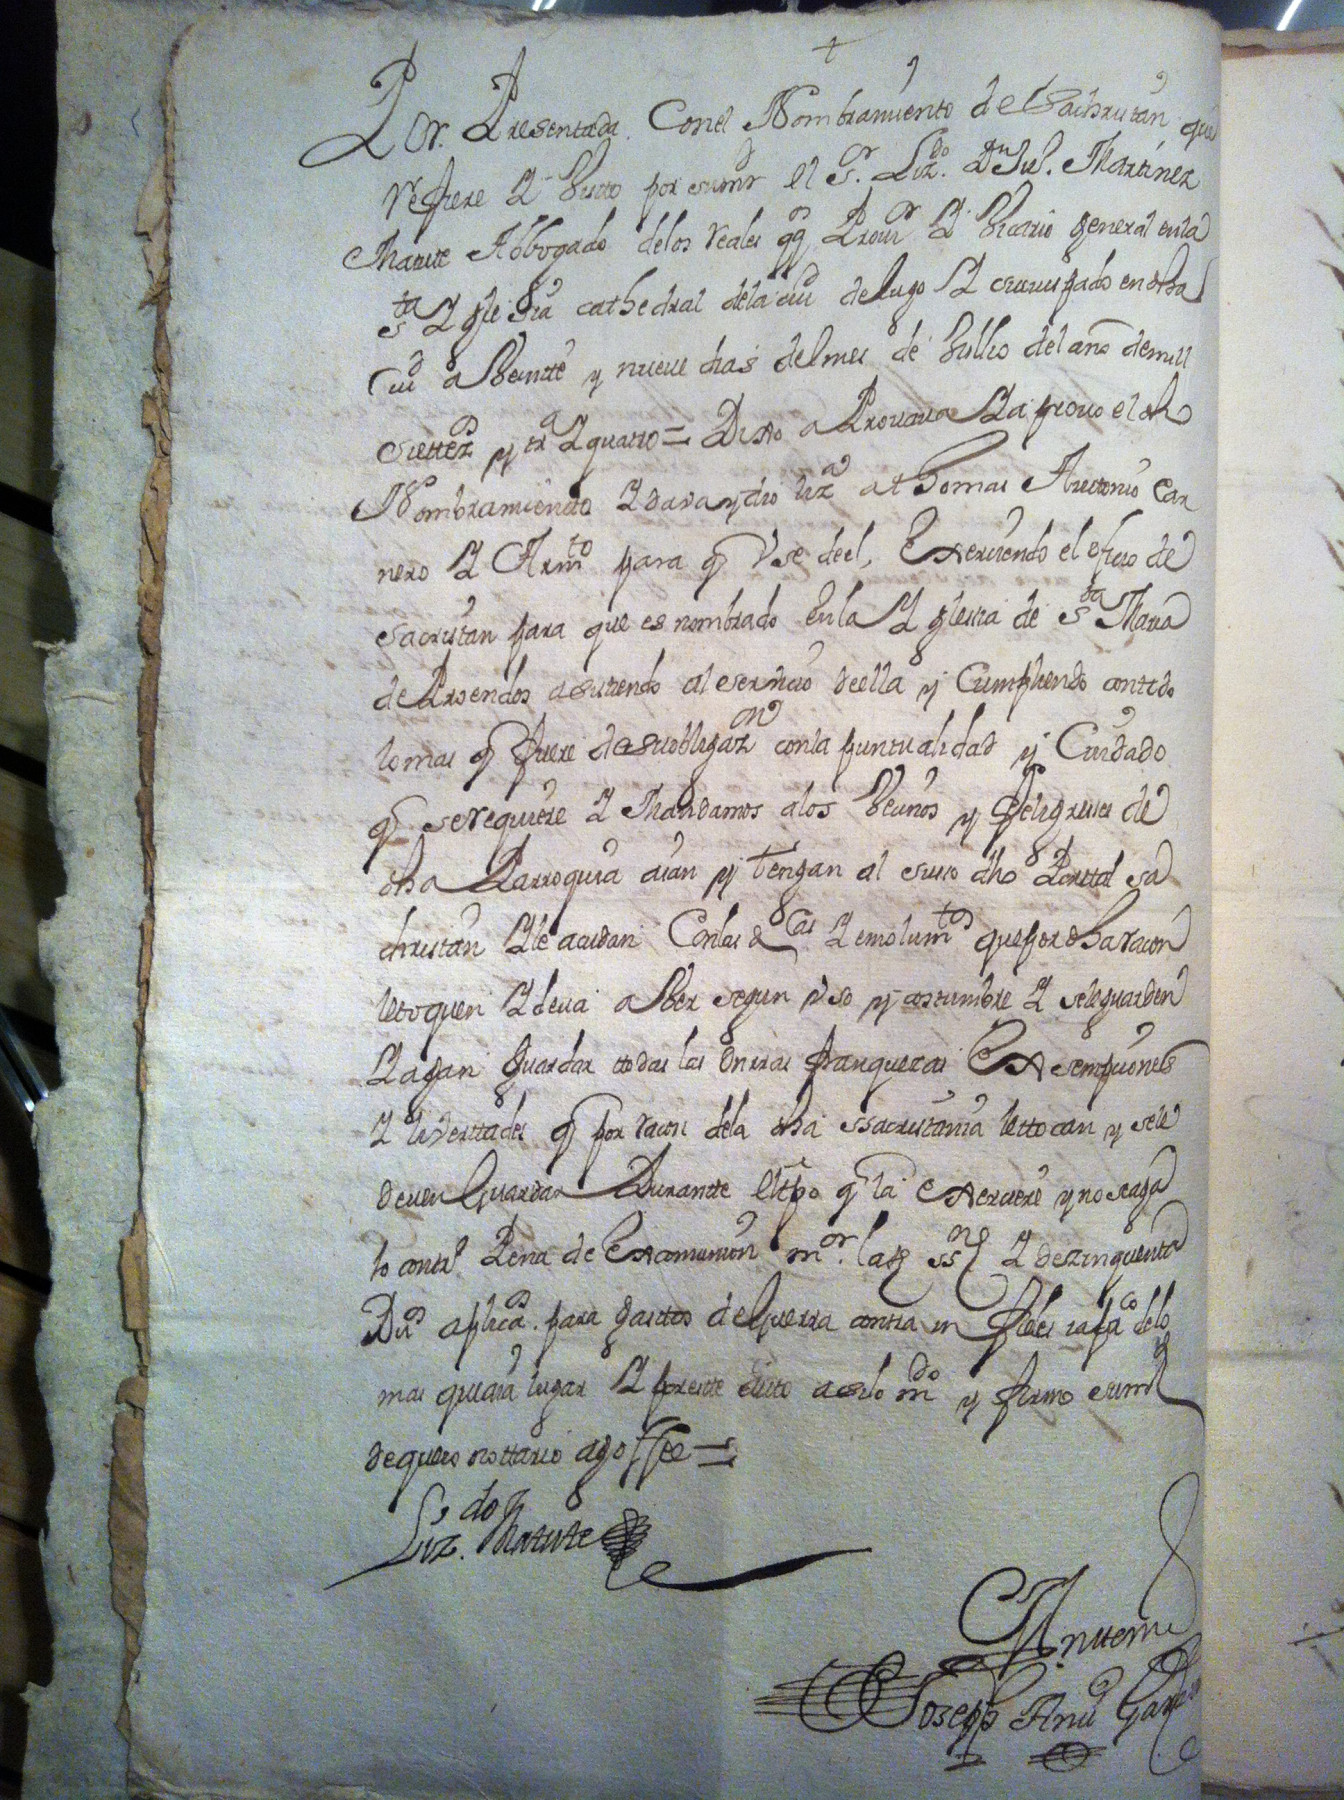 +
Por Presentada. Conel Nombramiento del Sachristan que
refiere Y Visto por sumrd el Sor. Lizdo. Dn Jul. Martinez
Matute Abbogado delos reales qqos Provor Y Vicario general enla
sta Yglesia cathedral dela ciud de lugo Y su ovispado en dha
ciud a Veintte y nueve dias delmes de Jullio del año demill
settezos y tra Y quatro = Dixo aProvava Y aprovo el dho
Nombramiento Y dava y dio liza a thomas Antonio Car
nero Y Armto para q Use deel, Exerciendo el oficio de
sacristan para que es nombrado Enla Yglesia de Sta Maria
de Proendos asistiendo al servicio deella y Cumpliendo contodo
lo mas q fuere desuobligazon conla puntualidad y Cuidado
q serequiere Y Mandamos alos Vecinos y feligreses de
dha Parroquia aian y tengan al suso dho Portal sa
christan Yle acudan Conlas Y emolumtos quepor dha racon
letoquen Y deva aber segun Uso y costumbre Y seleguarden
Yagan guardar ttodas las onrras franquezas Exsempciones
Y livertades q por racon dela dha ssacristania lettocan y sele
deven Guardar Durantte eltpo q la exerciere y no seaga
lo contro Pena de Excomunion mor. Y dezinquenta
Dus aplicados. para gasttos de Guerra contra in fieles
mas que aia lugar Y por este autto asilo mdo y firmo sumrd
dequeio nottario ago ffee =
Lizdo. Matute
Antemi
Joseph Anto